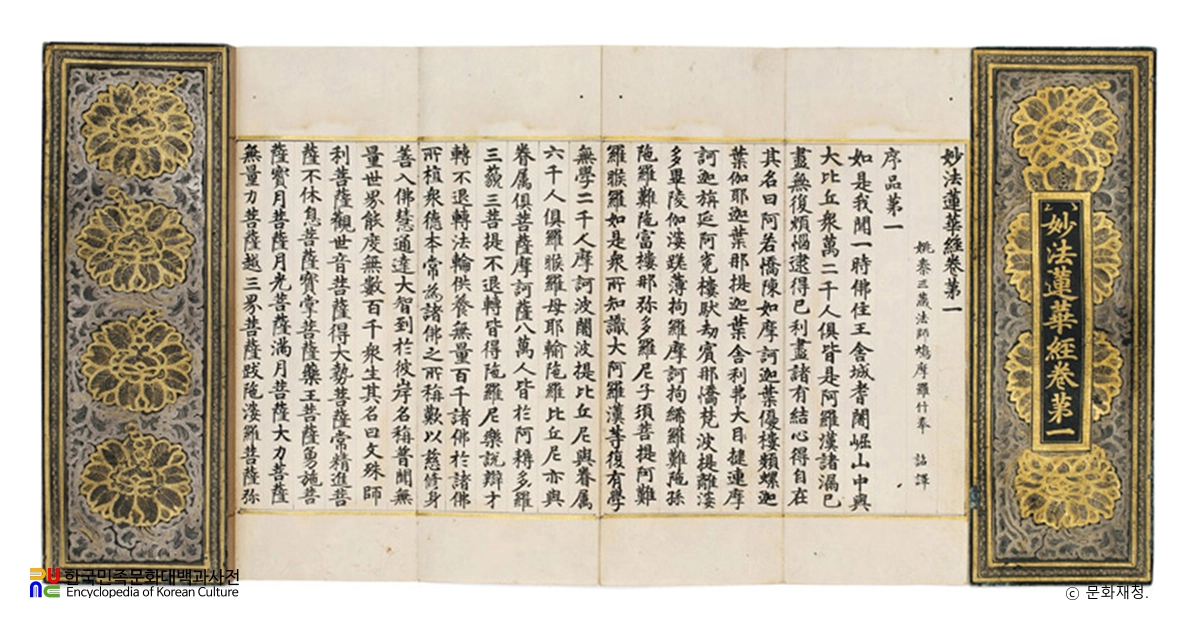 妙法蓮華經卷第一
妙法蓮華經卷第一
姚秦三藏法師鳩摩羅什奉 詔譯
序品第一
如是我聞一時佛住王舍城耆闍崛山中與
大比丘衆萬二千人俱皆是阿羅漢諸漏已
盡無復煩惱逮得己利盡諸有結心得自在
其名曰阿若憍陳如摩訶迦葉優樓頻螺迦
葉伽耶迦葉那提迦葉舍利弗大目揵連摩
訶迦旃延阿㝹樓馱劫賓那憍梵波提離婆
多畢陵伽婆蹉薄拘羅摩訶拘絺羅難陁孫
陁羅難陁富樓那弥多羅尼子須菩提阿難
羅睺羅如是衆所知識大阿羅漢等復有學
無學二千人摩訶波闍波提比丘尼與眷属
六千人俱羅睺羅母耶輸陁羅比丘尼亦與
眷属俱菩薩摩訶薩八萬人皆於阿耨多羅
三藐三菩提不退轉皆得陁羅尼樂說辯才
轉不退轉法輪供養無量百千諸佛於諸佛
所植衆德本常為諸佛之所稱歎以慈修身
善入佛慧通達大智到於彼岸名稱普聞無
量世界能度無數百千衆生其名曰文殊師
利菩薩觀世音菩薩得大勢菩薩常精進菩
薩不休息菩薩寶掌菩薩藥王菩薩勇施菩
薩寶月菩薩月光菩薩滿月菩薩大力菩薩
無量力菩薩越三界菩薩跋陁婆羅菩薩弥
한국민족문화대백과사전
Encyclopedia of Korean Culture
ⓒ 문화재청.